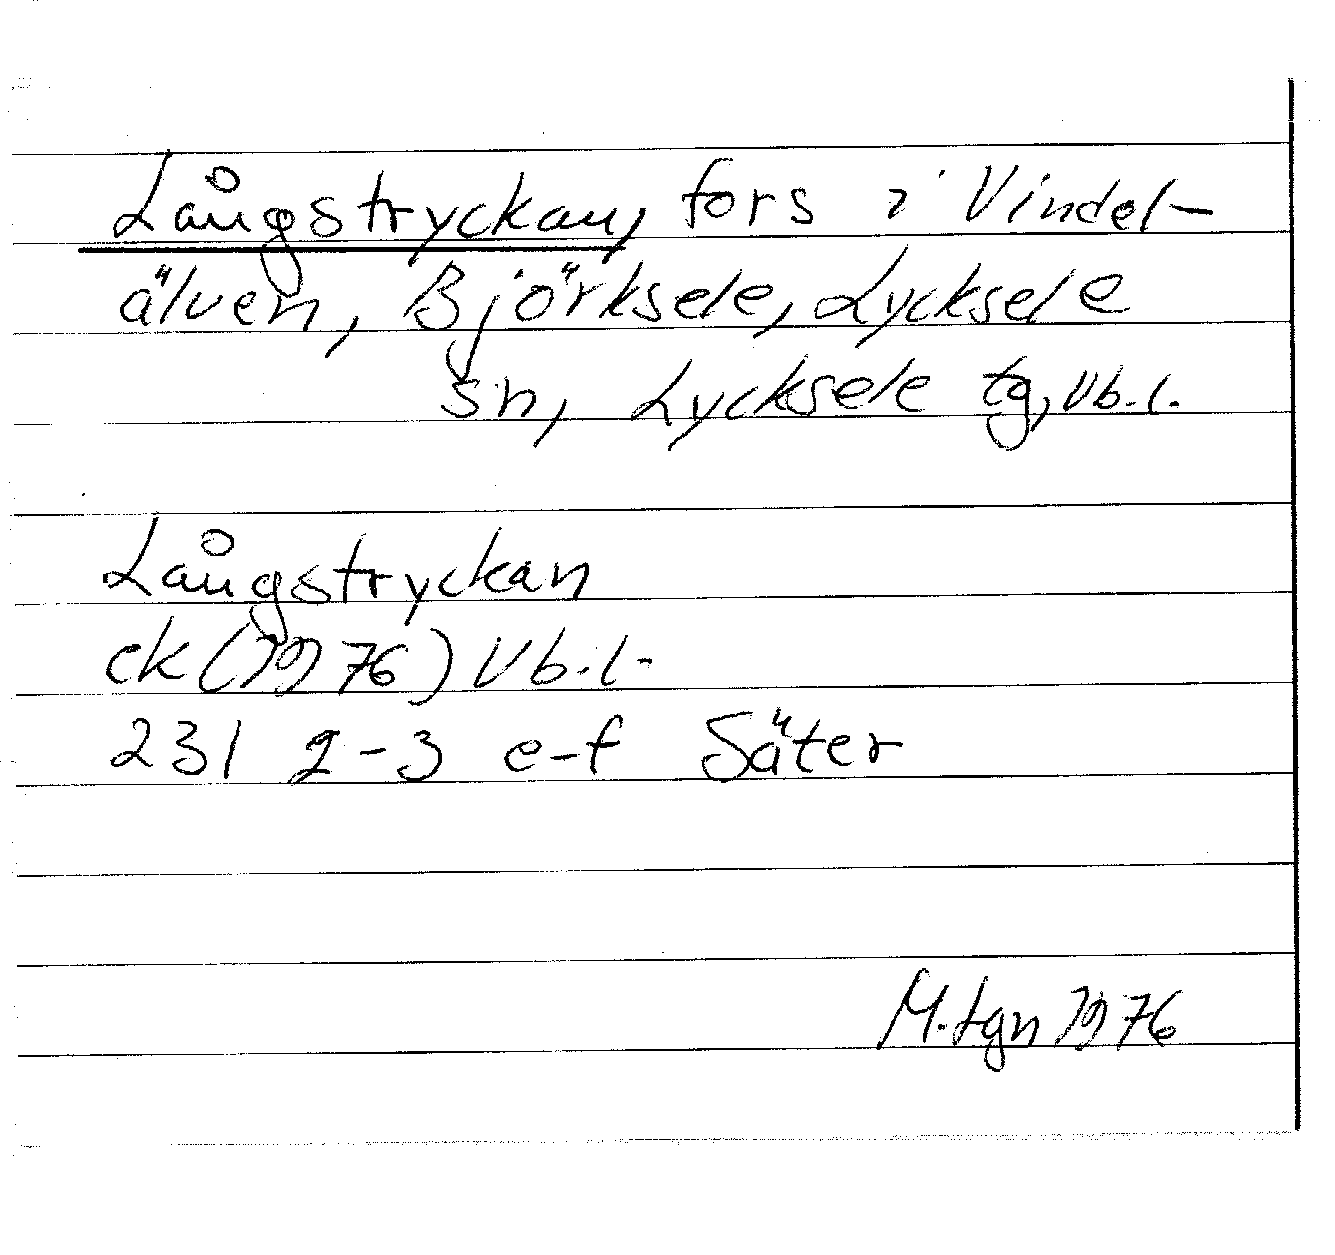 Långstryckan, fors i Vindel-
älven, Björksele, Lycksele
sn, Lycksele tg, Vb.l.
Långstryckan
ek (1976) Vb.l.
231 2-3 e-f Säter
M.tgn 1976